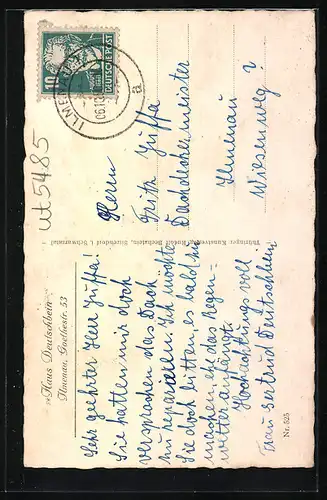 »Haus Deutschbein«
Ilmenau, Goethestr. 53
Sehr geehrter Herr Juffa!
Sie hatten mir doch
versprochen das Dach
zu reparieren. Ich möchte
Sie doch bitten es bald zu
machen, ehe das Regen-
wetter anfängt.
Hochachtungsvoll
Frau Gertrud Deutschbein
Nr. 525
Thüringer Kunstverlag Rudolf Bechstein, Sitzendorf i. Schwarzatal
ut5485
10
DEUTSCHE POST
ILMENAU
a
Herrn
Fritz Juffa
Dachdeckermeister
Ilmenau
Wiesenweg ?